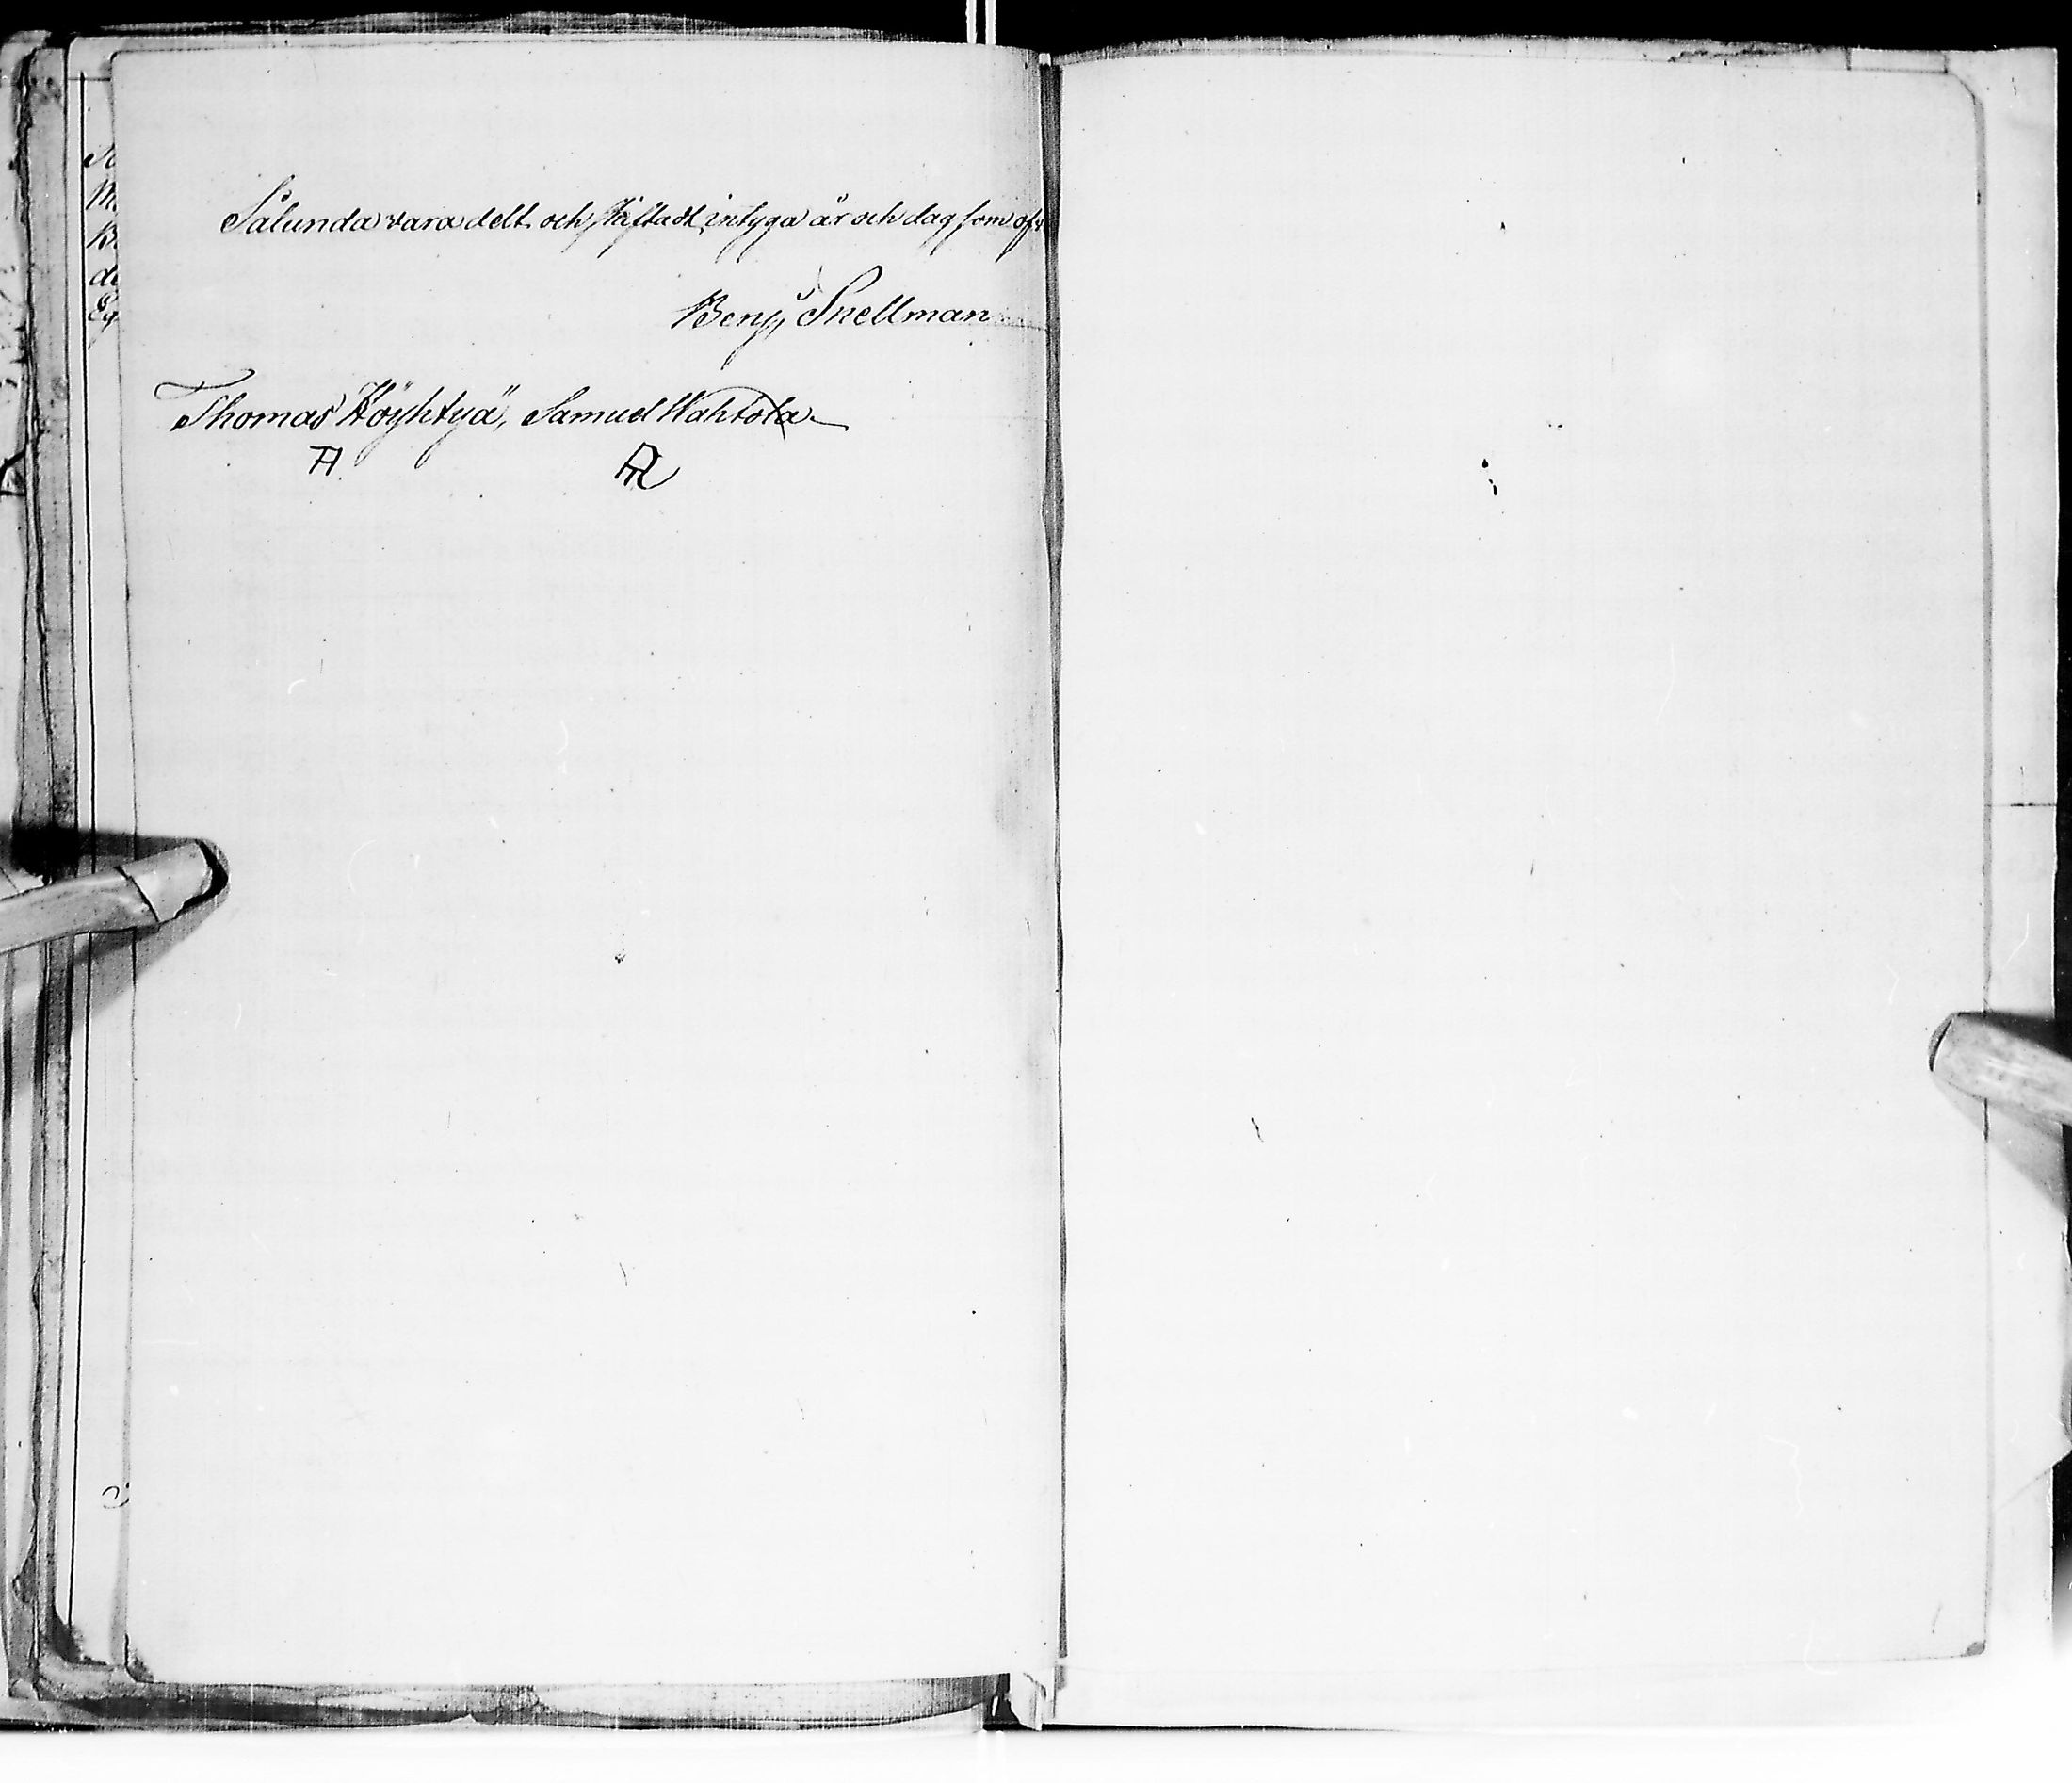 Sålunda vara delt och skiftadt, intyga år och dag som ofv
Benj. Snellman
Thomas Höyhtyä, Samuel Wahtola